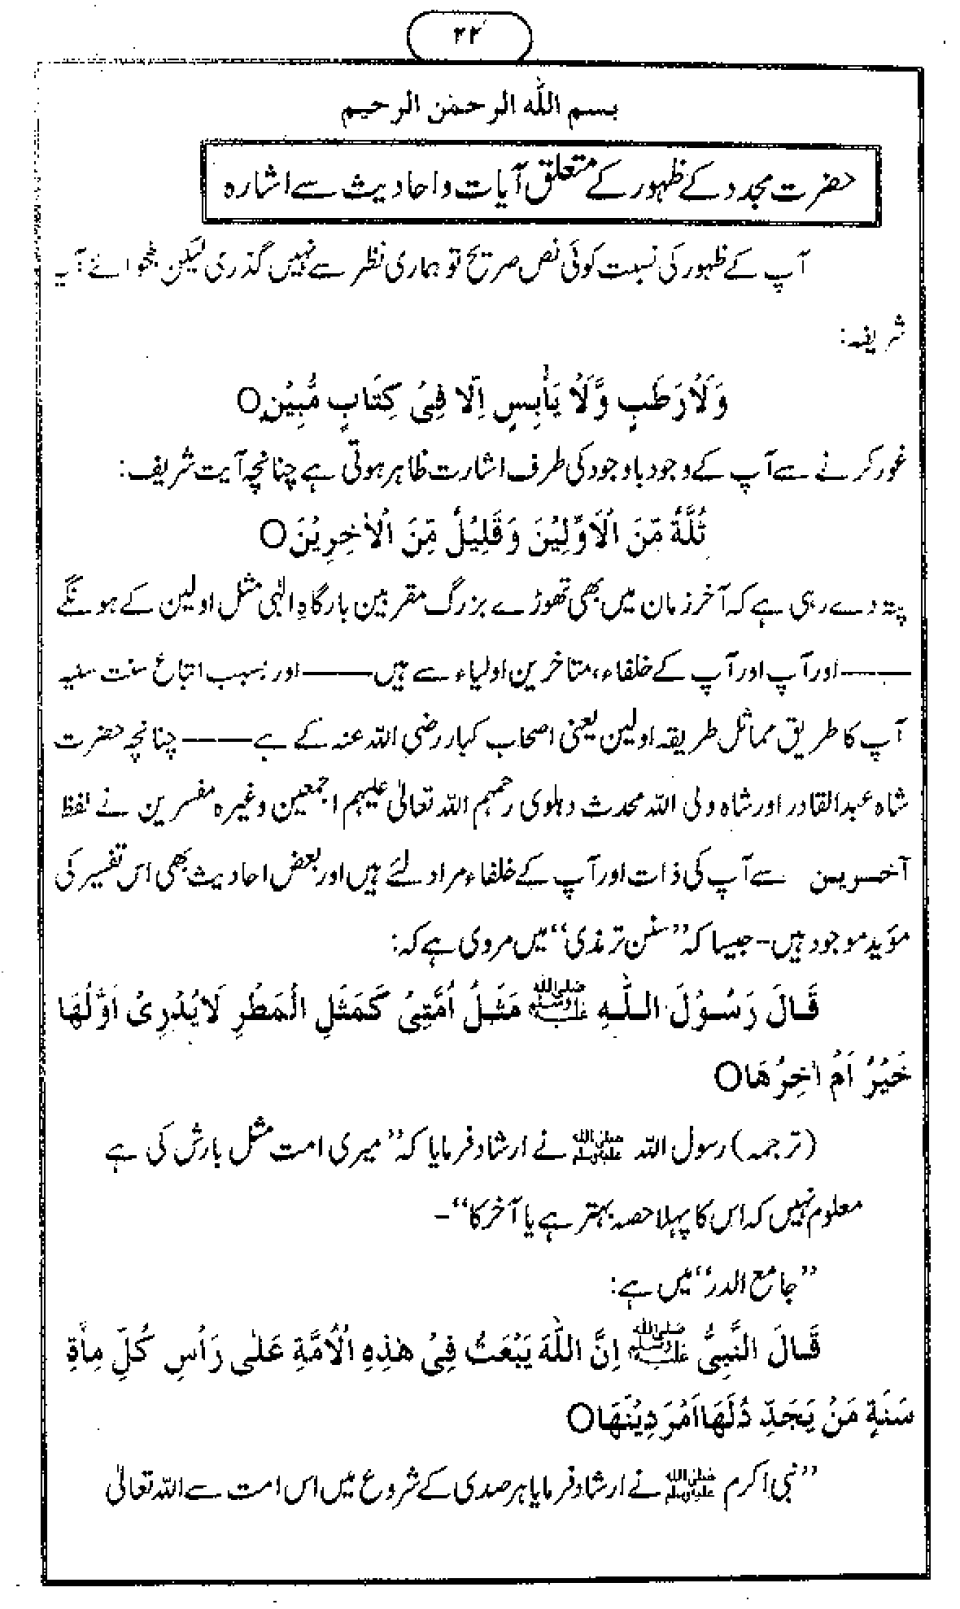 ۲۲
بسم اللہ الرحمٰن الرحیم
حضرت مجدد کے ظہور کے متعلق آیات و احادیث سے اشارہ
آپ کے ظہور کی نسبت کوئی نص صریح تو ہماری نظر سے نہیں گذری لیکن بفحوائے آیہ
شریفہ:
وَلَا رَطَبٍ وَّلَا يَابِسٍ اِلَّا فِىْ كِتَابٍ مُّبِيْنٍ○
غور کرنے سے آپ کے وجود باوجود کی طرف اشارت ظاہر ہوتی ہے چنانچہ آیت شریف:
ثُلَّةٌ مِّنَ الْاَوَّلِيْنَ وَقَلِيْلٌ مِّنَ الْاٰخِرِيْنَ○
پتہ دے رہی ہے کہ آخر زمان میں بھی تھوڑے بزرگ مقربین بارگاہِ الٰہی مثل اولین کے ہونگے
—— اور آپ اور آپ کے خلفاء، متاخرین اولیاء سے ہیں —— اور بسبب اتباع سنت سنیہ
آپ کا طریق مماثل طریقہ اولین یعنی اصحاب کبار رضی اللہ عنہ کے ہے —— چنانچہ حضرت
شاہ عبدالقادر اور شاہ ولی اللہ محدث دہلوی رحمہم اللہ تعالیٰ علیہم اجمعین وغیرہ مفسرین نے لفظ
آخرین سے آپ کی ذات اور آپ کے خلفاء مراد لئے ہیں اور بعض احادیث بھی اس تفسیر کی
مؤید موجود ہیں- جیسا کہ ”سنن ترمذی“ میں مروی ہے کہ:
قَالَ رَسُوْلَ اللّٰهِ ﷺ مَثَلُ اُمَّتِىْ كَمَثَلِ الْمَطْرِ لَايُدْرِىْ اَوَّلُهَا
خَيْرٌ اَمْ اٰخِرُهَا○
(ترجمہ) رسول اللہ ﷺ نے ارشاد فرمایا کہ ”میری امت مثل بارش کی ہے
معلوم نہیں کہ اس کا پہلا حصہ بہتر ہے یا آخر کا“-
”جامع الدر“ میں ہے:
قَالَ النَّبِىُّ ﷺ اِنَّ اللّٰهَ يَبْعَثُ فِىْ هٰذِهِ الْاُمَّةِ عَلٰى رَاْسِ كُلِّ مِاَةِ
سَنَةٍ مَنْ يَجَدِّدُلَهَا اَمْرَ دِيْنَهَا○
”نبی اکرم ﷺ نے ارشاد فرمایا ہر صدی کے شروع میں اس امت سے اللہ تعالیٰ